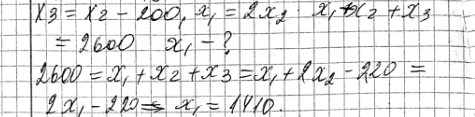 x3 = x2 - 200, x1 = 2x2 x1 + x2 + x3
= 2600 x1 - ?
2600 = x1 + x2 + x3 = x1 + 2x2 - 220 =
2x1 - 220 => x1 = 1410.